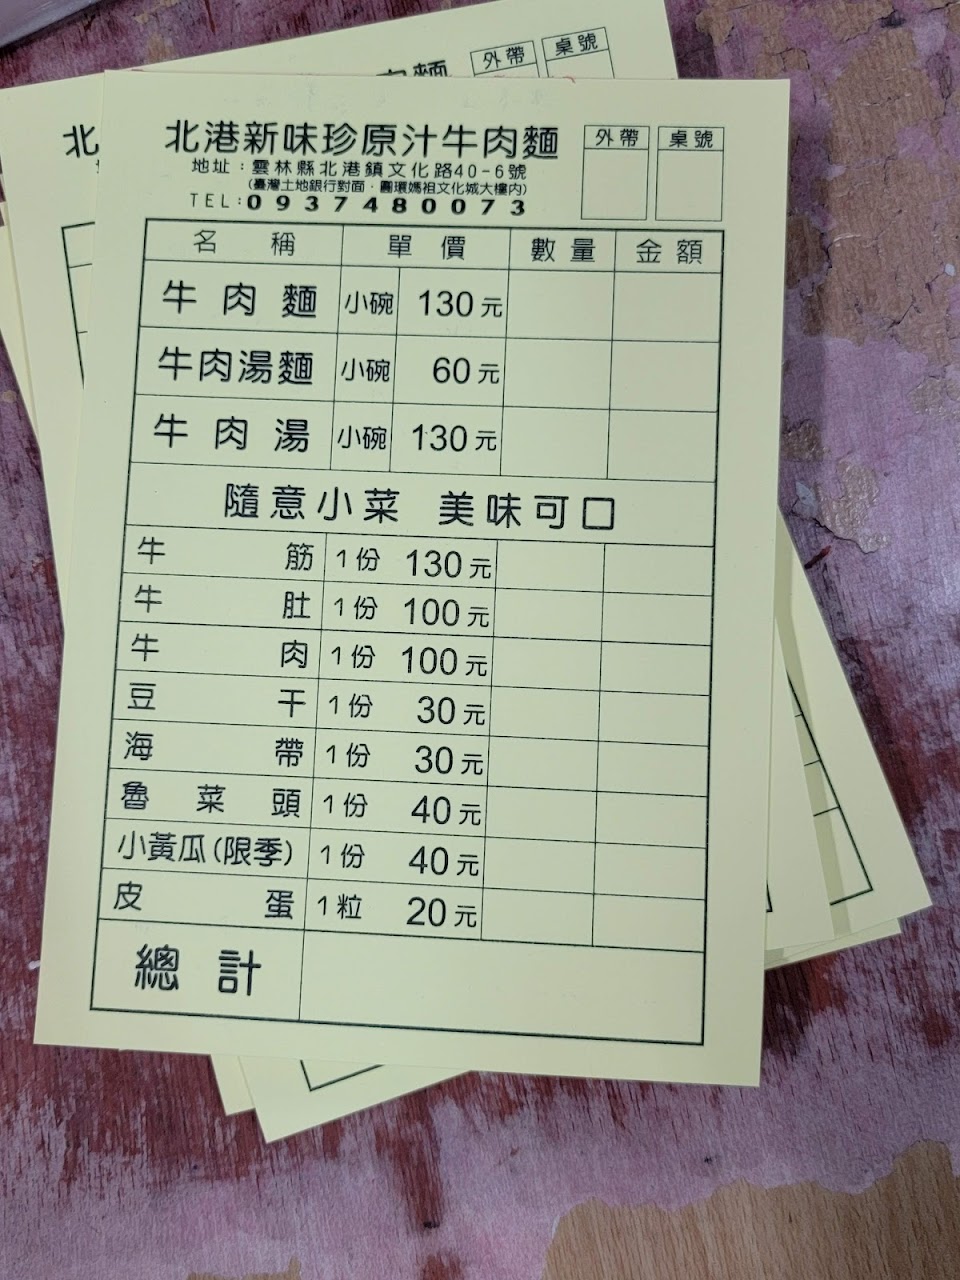 外帶 桌號
北
北港新味珍原汁牛肉麵 外帶 桌號
地址：雲林縣北港鎮文化路40-6號
(臺灣土地銀行對面．圓環媽祖文化城大樓內)
TEL:0937480073
名稱 單價 數量 金額
牛肉麵 小碗 130元
牛肉湯麵 小碗 60元
牛肉湯 小碗 130元
隨意小菜 美味可口
牛筋 1份 130元
牛肚 1份 100元
牛肉 1份 100元
豆干 1份 30元
海帶 1份 30元
魯菜頭 1份 40元
小黃瓜(限季) 1份 40元
皮蛋 1粒 20元
總計